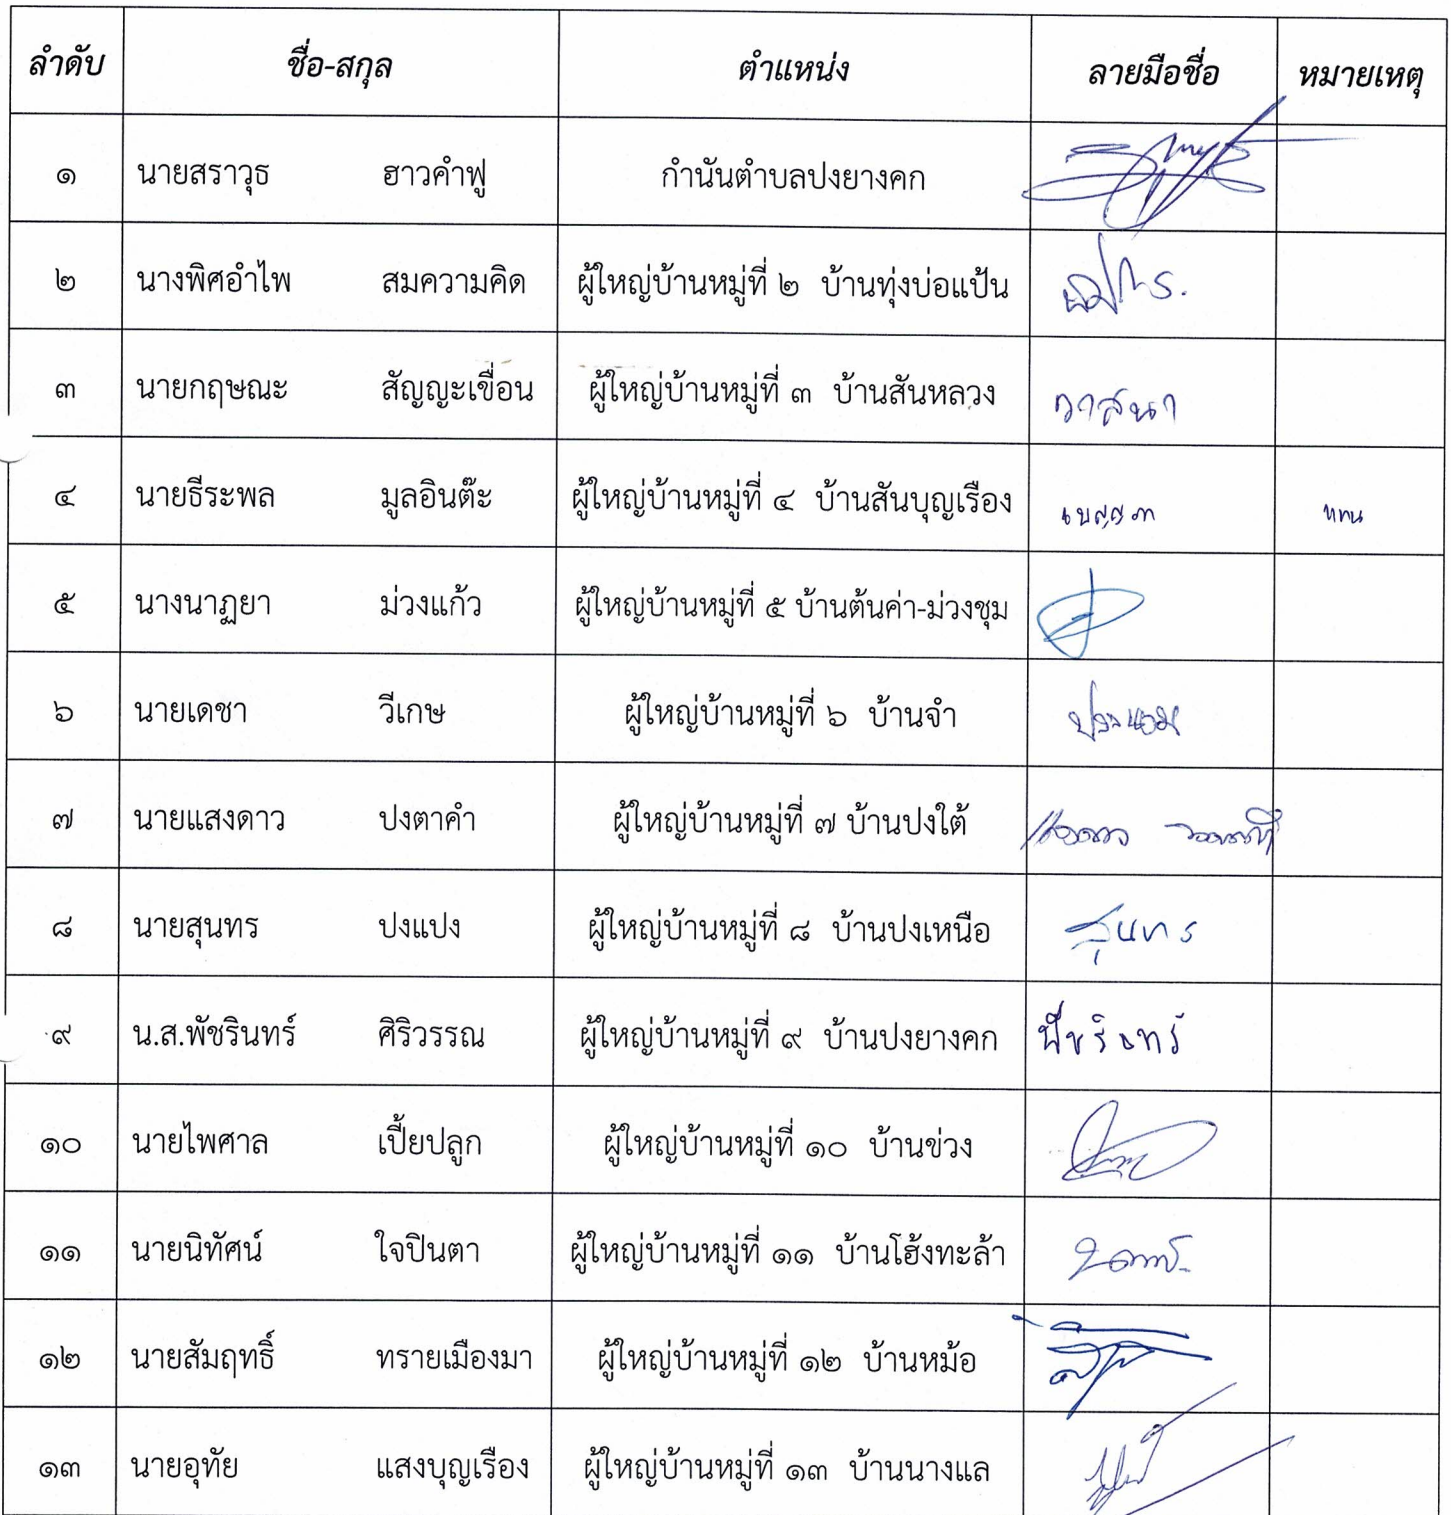 ลำดับ ชื่อ-สกุล ตำแหน่ง ลายมือชื่อ หมายเหตุ
๑ นายสราวุธ ฮาวคำฟู กำนันตำบลปงยางคก
๒ นางพิศอำไพ สมความคิด ผู้ใหญ่บ้านหมู่ที่ ๒ บ้านทุ่งบ่อแป้น
๓ นายกฤษณะ สัญญะเขื่อน ผู้ใหญ่บ้านหมู่ที่ ๓ บ้านสันหลวง วาสนา
๔ นายธีระพล มูลอินต๊ะ ผู้ใหญ่บ้านหมู่ที่ ๔ บ้านสันบุญเรือง เบญจา แทน
๕ นางนาฏยา ม่วงแก้ว ผู้ใหญ่บ้านหมู่ที่ ๕ บ้านต้นค่า-ม่วงชุม
๖ นายเดชา วีเกษ ผู้ใหญ่บ้านหมู่ที่ ๖ บ้านจำ
๗ นายแสงดาว ปงตาคำ ผู้ใหญ่บ้านหมู่ที่ ๗ บ้านปงใต้
๘ นายสุนทร ปงแปง ผู้ใหญ่บ้านหมู่ที่ ๘ บ้านปงเหนือ สุนทร
๙ น.ส.พัชรินทร์ ศิริวรรณ ผู้ใหญ่บ้านหมู่ที่ ๙ บ้านปงยางคก พัชรินทร์
๑๐ นายไพศาล เปี้ยปลูก ผู้ใหญ่บ้านหมู่ที่ ๑๐ บ้านข่วง
๑๑ นายนิทัศน์ ใจปินตา ผู้ใหญ่บ้านหมู่ที่ ๑๑ บ้านโฮ้งทะล้า
๑๒ นายสัมฤทธิ์ ทรายเมืองมา ผู้ใหญ่บ้านหมู่ที่ ๑๒ บ้านหม้อ
๑๓ นายอุทัย แสงบุญเรือง ผู้ใหญ่บ้านหมู่ที่ ๑๓ บ้านนางแล